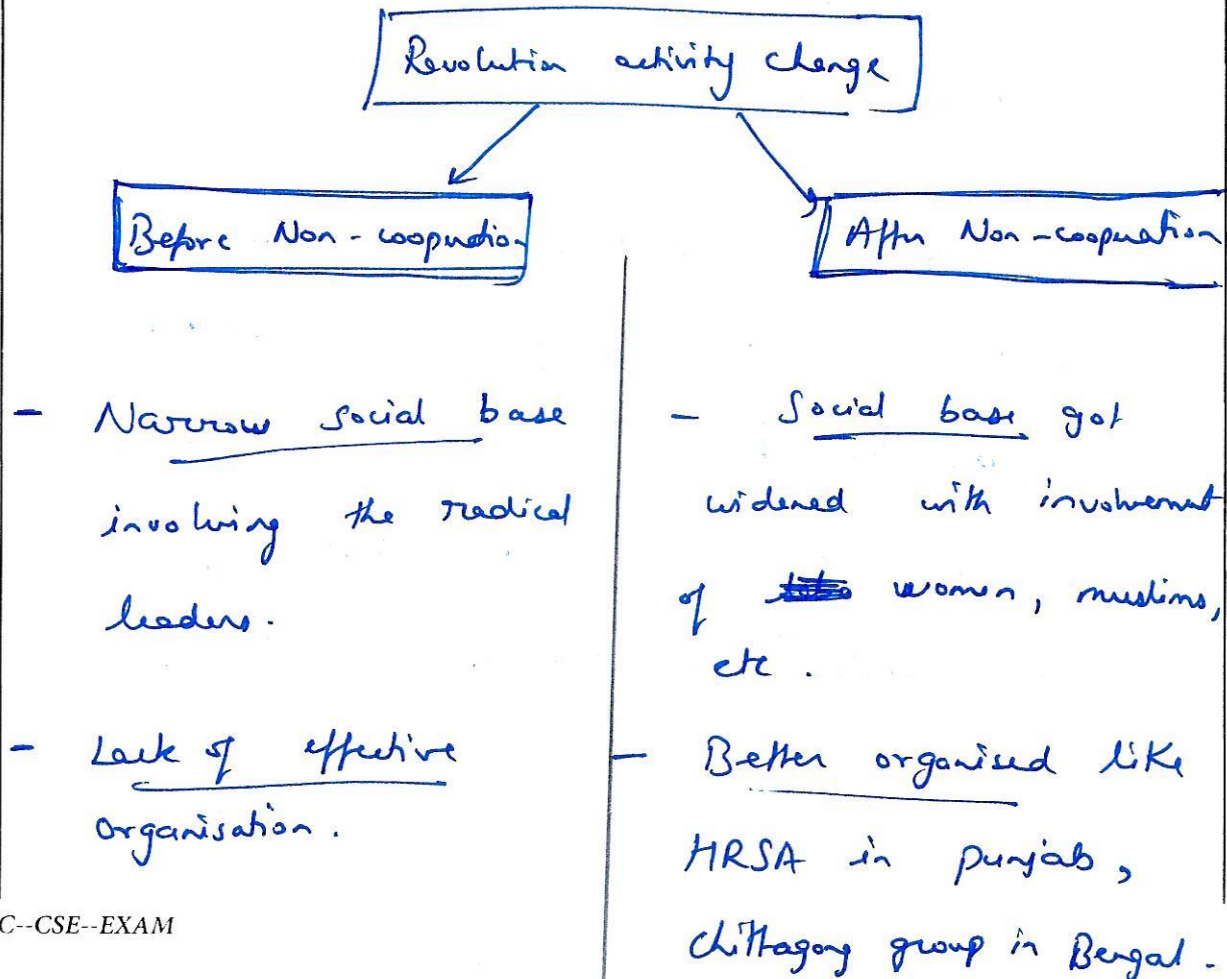 Revolution activity change
Before Non-cooperation
After Non-cooperation
- Narrow social base
involving the radical
leaders.
- Lack of effective
organisation.
- Social base got
widened with involvement
of women, muslims,
etc.
- Better organised like
HRSA in punjab,
Chittagong group in Bengal.
C--CSE--EXAM